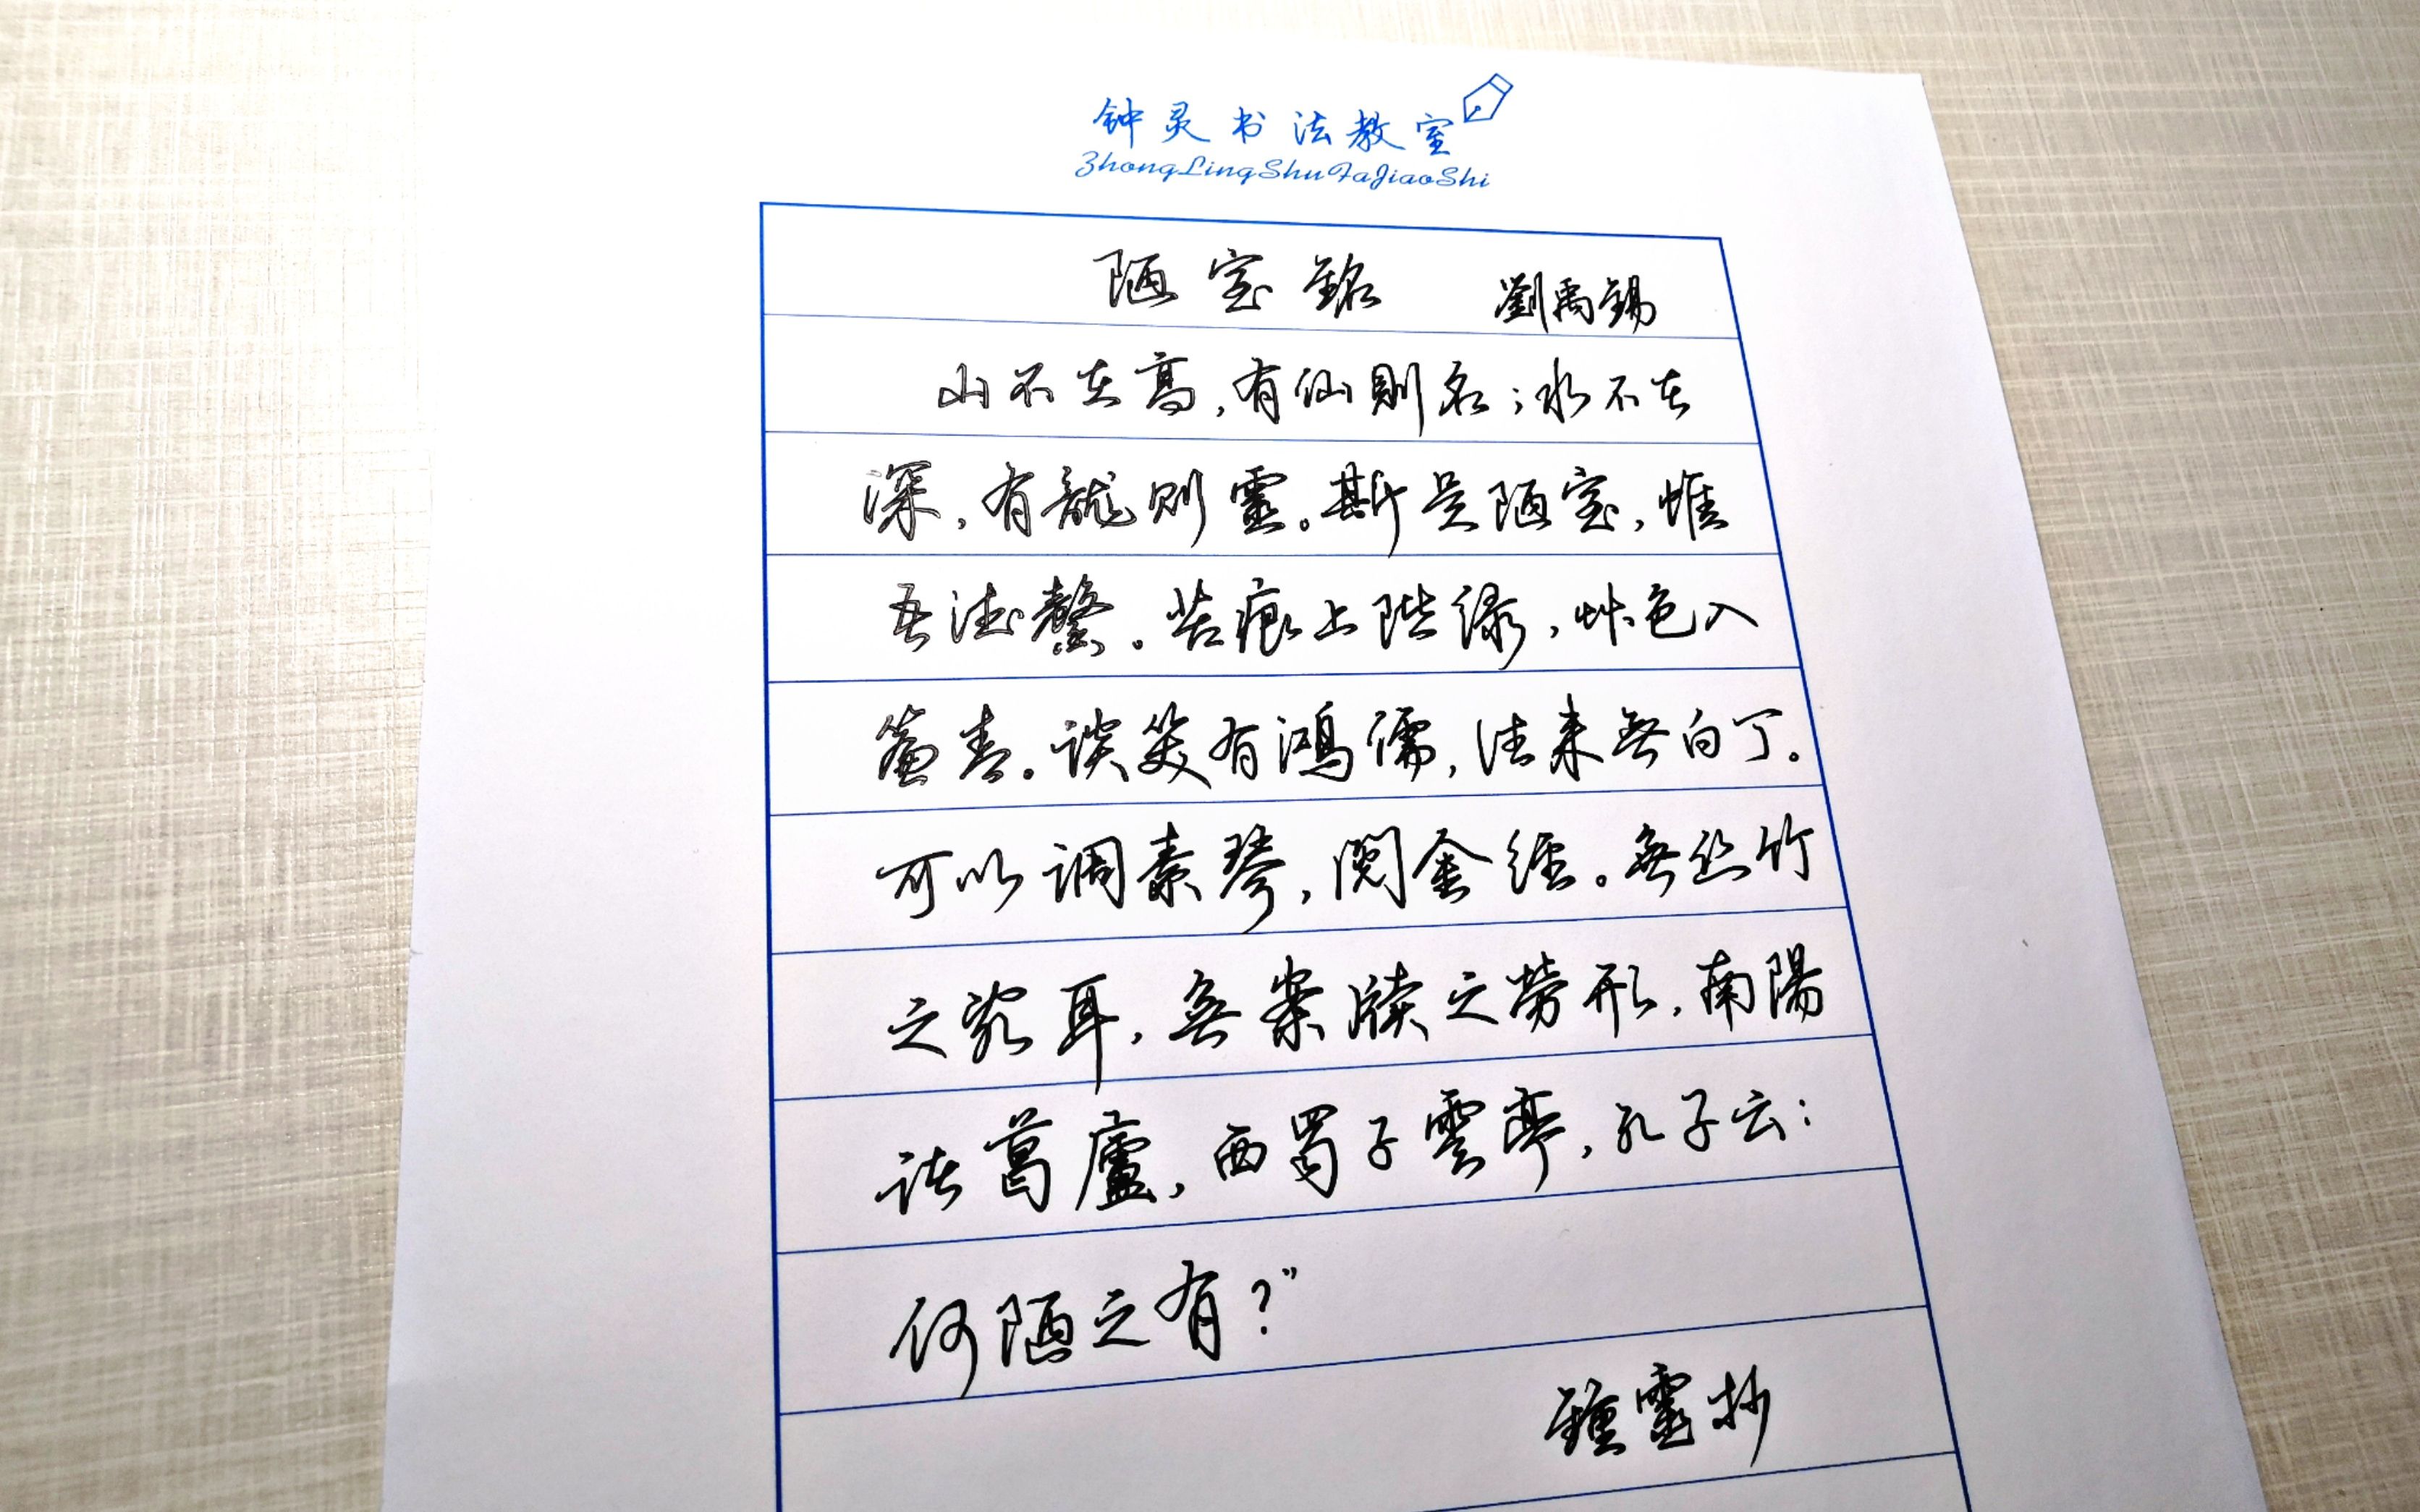 钟灵书法教室
ZhongLingShuFaJiaoShi
陋室銘 劉禹錫
山不在高,有仙則名;水不在
深,有龍则靈。斯是陋室,惟
吾德馨。苔痕上階绿,艸色入
簾青。谈笑有鴻儒,往来無白丁。
可以调素琴,閱金經。無丝竹
之亂耳,無案牍之勞形,南陽
诸葛廬,西蜀子雲亭,孔子云:
何陋之有?”
鍾靈抄